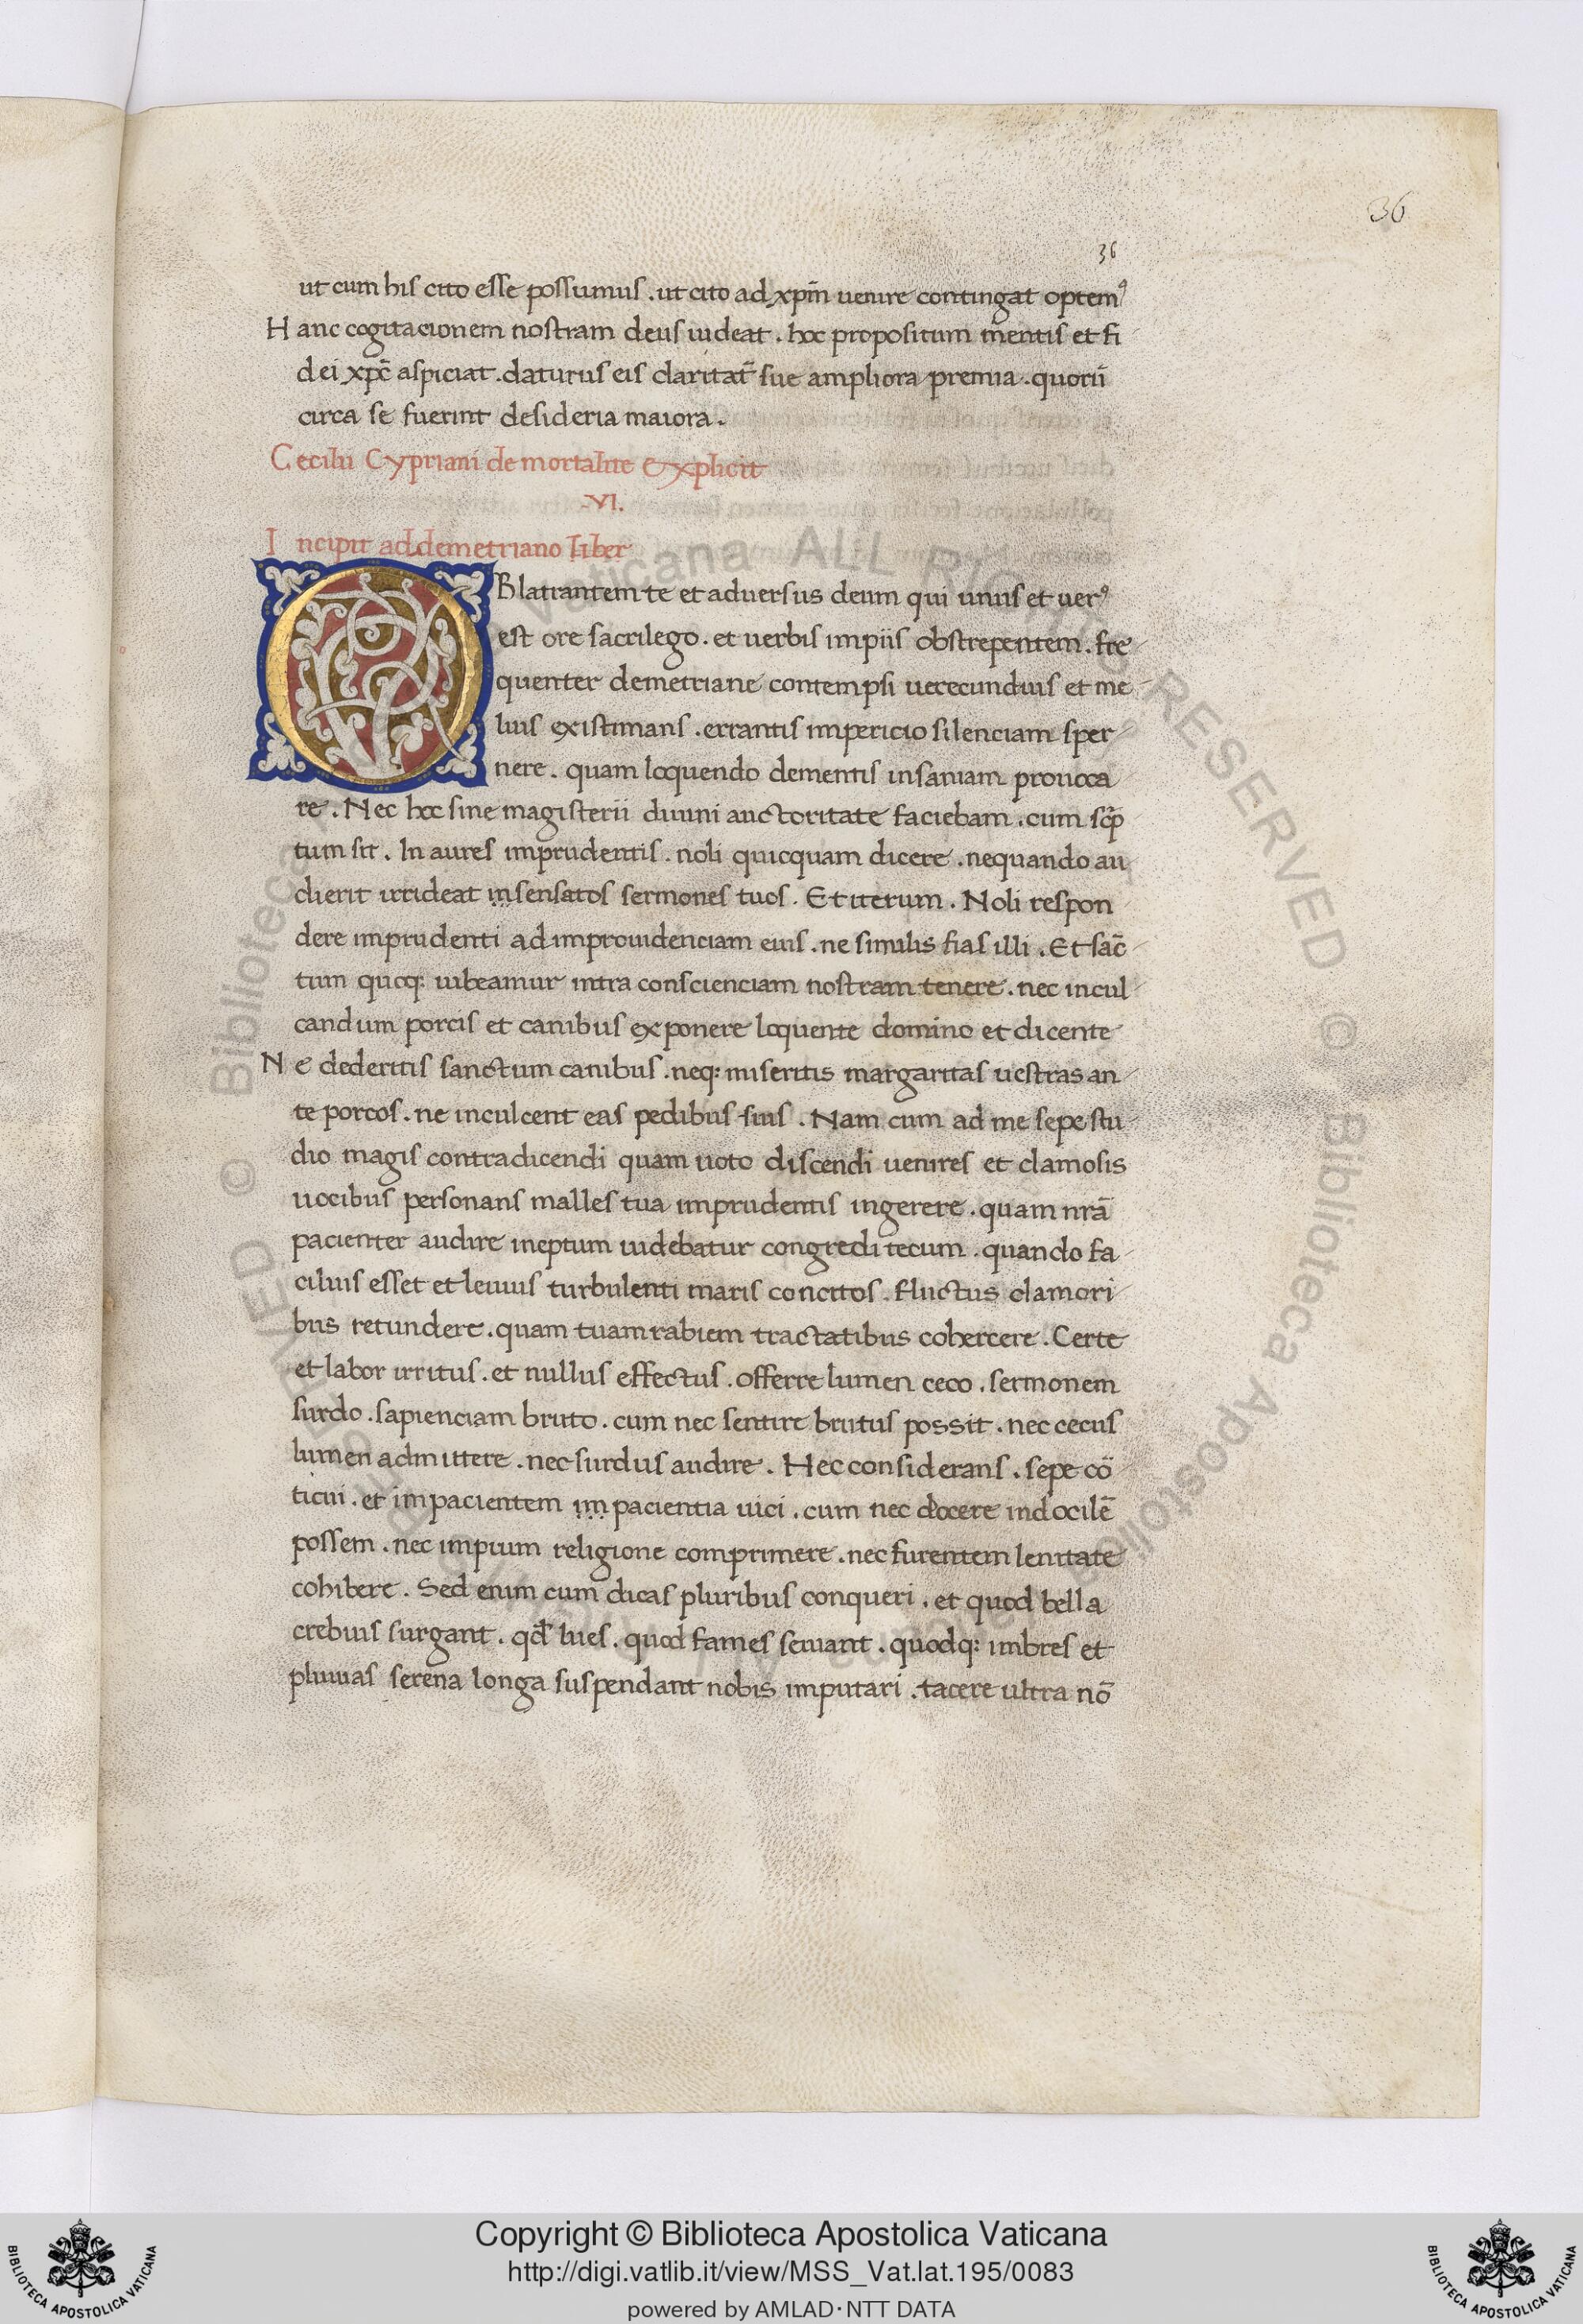 36
36
ut cum his cito esse possumus . ut cito ad xp̄m uenire contingat optemꝰ
Hanc cogitacionem nostram deus uideat . hoc propositum mentis et fi
dei xp̄c aspiciat . daturus eis claritat̄ sue ampliora premia . quorū
circa se fuerint desideria maiora .
Cecilii Cypriani de mortalite explicit
.VI.
Incipit ad demetriano liber
OBlatrantem te et aduersus deum qui unus et uerꝰ
est ore sacrilego . et uerbis impiis obstrepentem . fre
quenter demetriane contempsi uerecundius et me
lius existimans . errantis impericio silenciam sper
nere . quam loquendo dementis insaniam prouoca
re . Nec hoc sine magisterii diuini auctoritate faciebam . cum scp̄
tum sit . In aures imprudentis . noli quicquam dicere . nequando au
dierit irrideat insensatos sermones tuos . Et iterum . Noli respon
dere imprudenti ad improuidenciam eius . ne similis fias illi . Et sāc
tum quoq: iubeamur intra conscienciam nostram tenere . nec incul
candum porcis et canibus exponere loquente domino et dicente
Ne dederitis sanctum canibus . neq: miseritis margaritas uestras an
te porcos . ne inculcent eas pedibus suis . Nam cum ad me sepe stu
dio magis contradicendi quam uoto discendi uenires et clamosis
uocibus personans malles tua imprudentis ingerere . quam nrā
pacienter audire ineptum uidebatur congredi tecum . quando fa
cilius esset et leuius turbulenti maris concitos . fluctus clamori
bus retundere . quam tuam rabiem tractatibus cohercere . Certe
et labor irritus . et nullus effectus . offerre lumen ceco . sermonem
surdo . sapienciam bruto . cum nec sentire brutus possit . nec cecus
lumen admittere . nec surdus audire . Hec considerans . sepe cō
ticui . et impacientem impacientia uici . cum nec docere indocilē
possem . nec impium religione comprimere . nec furentem lenitate
cohibere . Sed enim cum dicas pluribus conqueri . et quod bella
crebius surgant . qd̄ lues . quod fames seuiant . quodq: imbres et
pluuias serena longa suspendant nobis imputari . tacere ultra nō
Copyright © Biblioteca Apostolica Vaticana
http://digi.vatlib.it/view/MSS_Vat.lat.195/0083
powered by AMLAD·NTT DATA
BIBLIOTECA APOSTOLICA VATICANA
BIBLIOTECA APOSTOLICA VATICANA